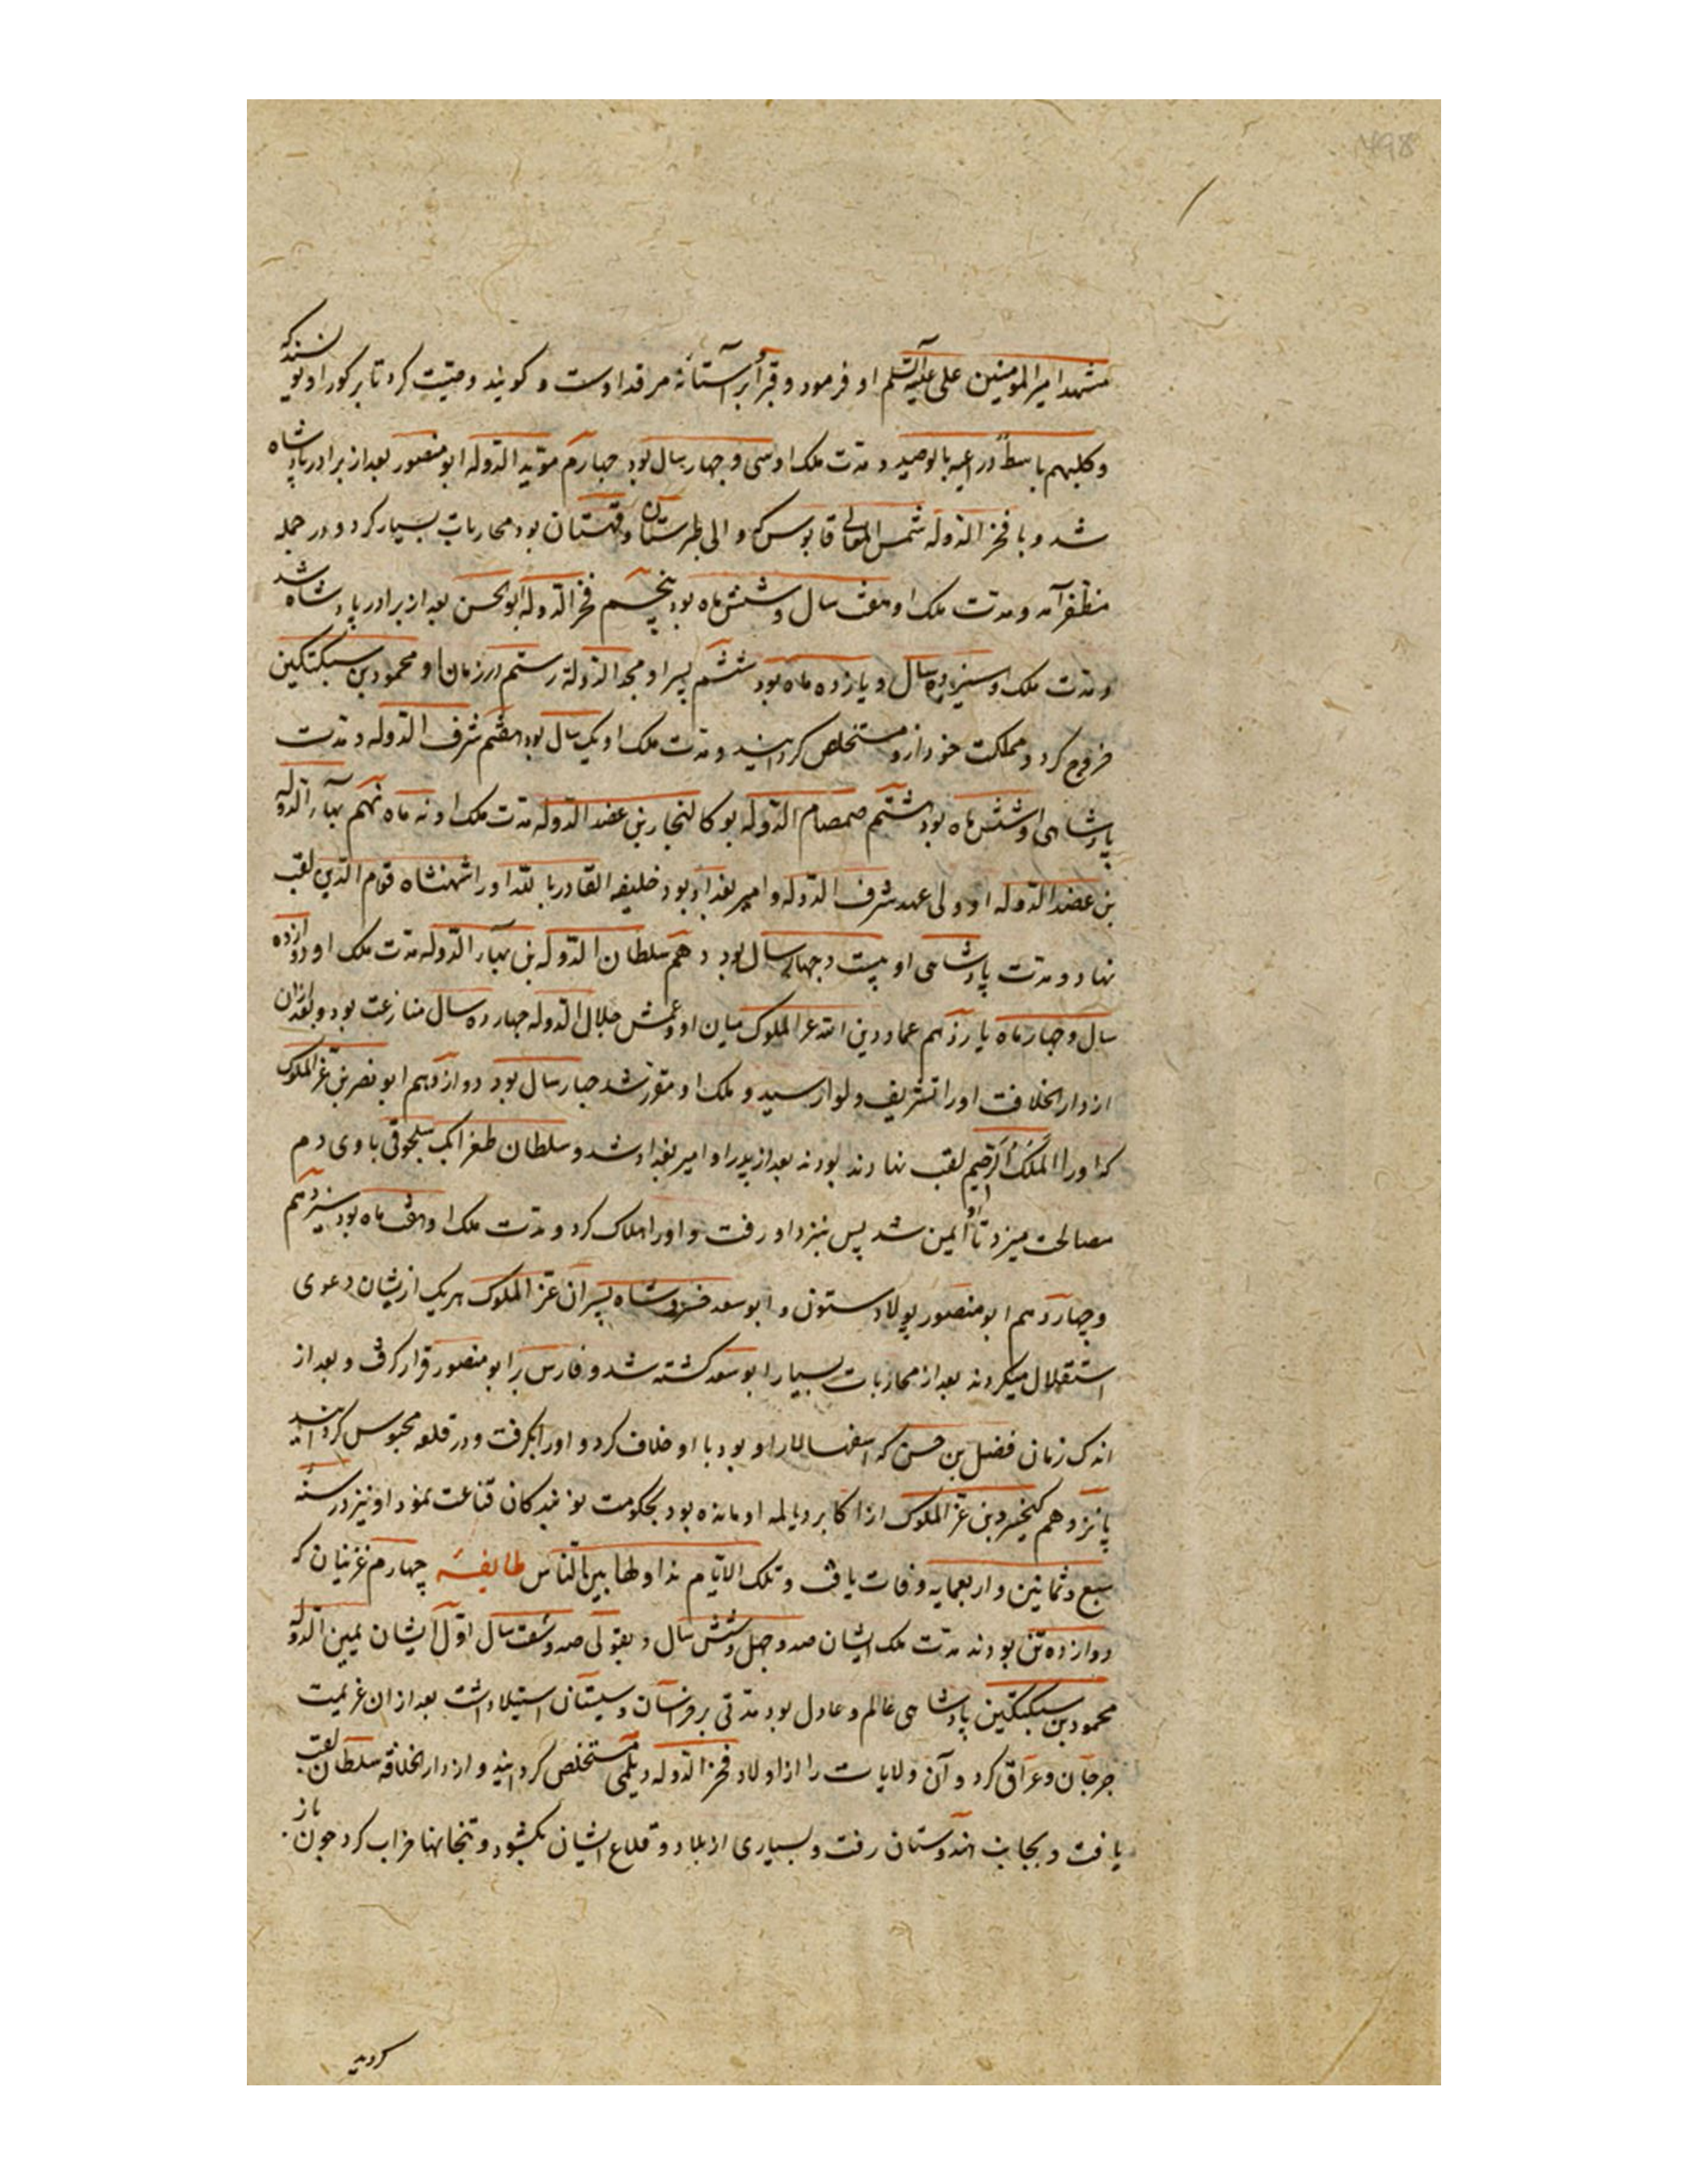 مشهد امیر المومنین علی علیه السلم او فرمود و قبرا و بر آستانهٔ مرقد اوست و کویند وصیّت کرد تا بر کور او بنویسند که
و کلبهم باسط ذراعیه بالوصید و مدت ملک او سی و چهار سال بود چهارم موّید الدوله ابو منصور بعد از برادر پادشاه
شد و با فخر الدوله شمس المعالی قابوس که والی طبرستان و قهستان بود محاربات بسیار کرد و در جمله
مظفر آمد و مدت ملک او هفت سال و شش ماه بود پنجم فخر الدوله ابو الحسن بعد از برادر پادشاه شد
و مدت ملک او سیزده سال و یازده ماه بود ششم پسر او مجد الدوله رستم در زمان او محمود بن سبکتکین
خروج کرد و مملکت خود ازو مستخلص کردانید و مدت ملک او یک سال بود هفتم شرف الدوله و مدت
پادشاهی او شش ماه بود هشتم صمصام الدوله بو کالنجار بن عضد الدوله مدت ملک او نه ماه نهم بهآء الدوله
بن عضد الدوله او ولی عهد شرف الدوله و امیر بغداد بود خلیفه القادر بالله او را شهنشاه قوام الدین لقب
نهاد و مدت پادشاهی او بیست و چهار سال بود دهم سلطان الدوله بن بهآء الدوله مدت ملک او دوازده
سال و چهار ماه یازدهم عماد دین الله عز الملوک میان او و عمش جلال الدوله چهارده سال منازعت بود و بعد از ان
از دار الخلافت او را تشریف و لوا رسید و ملک او مقرر شد چهار سال بود دوازدهم ابو نصر بن عز الملوک
که او را الملک الرحیم لقب نهادند بودند بعد از پدر او امیر بغداد شد و سلطان طغرابک سلجوقی با وی دم
مصالحت میزد تا او ایمن شد پس بنزد او رفت و او را هلاک کرد و مدت ملک او هفت ماه بود سیزدهم
و چهاردهم ابو منصور پولاد ستون و ابو سعد خسرو شاه پسران عز الملوک هر یک از یشان دعوی
استقلال میکردند بعد از محاربات بسیار ابو سعد کشته شد و فارس بر ابو منصور قرار کرفت و بعد از
اندک زمان فضل بن حسن که اسفهسالار او بود با او خلاف کرد و او را بکرفت و در قلعه محبوس کردانید
پانزدهم کیخسرو بن عز الملوک از اکابر دیالمه او مانده بود بحکومت نوبندکان قناعت نمود او نیز در سنه
سبع و ثمانین و اربعمایه وفات یافت و تلک الایام نداولها بین الناس طایفهٔ چهارم غزنیان که
دوازده تن بودند مدت ملک ایشان صد و چهل و شش سال و بقولی صد و شصت سال اوّل ایشان یمین الدوله
محمود بن سبکتکین پادشاهی عالم و عادل بود مدتی بر خراسان و سیستان استیلا داشت بعد از ان عزیمت
جرجان و عراق کرد و آن ولایات را از اولاد فخر الدوله دیلمی مستخلص کردانید و از دار الخلافه سلطان لقب
یافت و بجانب هندوستان رفت و بسیاری از بلاد و قلاع ایشان بکشود و بتخانها خراب کرد چون باز
کردید